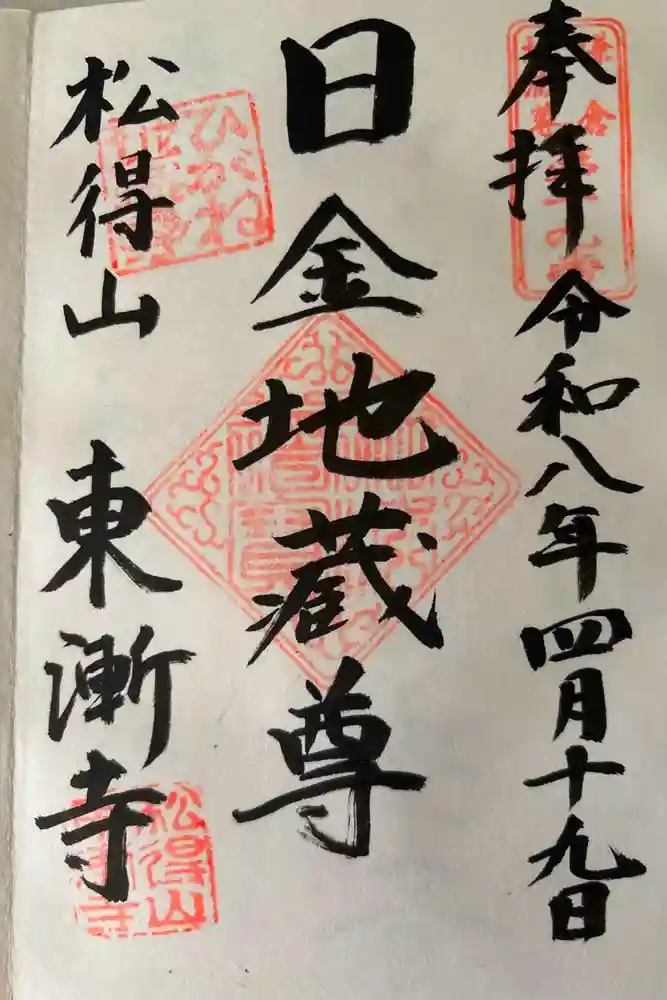 奉拝 令和八年四月十九日
日金地蔵尊
松得山 東漸寺
松得山